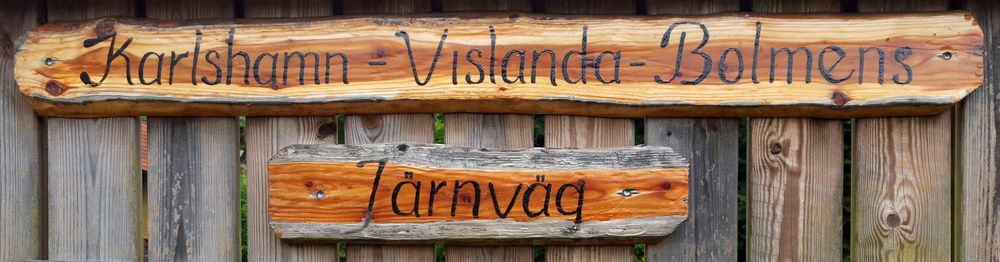 Karlshamn - Vislanda - Bolmens
Järnväg